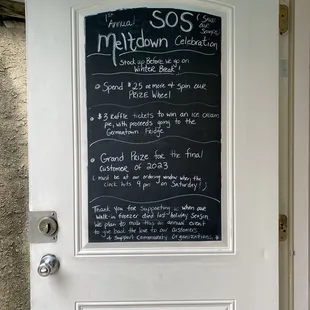 1st Annual SOS (Save our Scoops)
Meltdown Celebration
Stock up Before we go on
Winter Break!
Spend $25 or more & spin our
PRIZE Wheel
$3 raffle tickets to win an ice cream
pie, with proceeds going to the
Germantown Fridge.
Grand Prize for the final
customer of 2023
(must be at our ordering window when the
clock hits 9 pm on Saturday!)
Thank you for supporting us when our
walk-in freezer died last holiday season
We plan to make this an annual event
to give back the love to our customers
& support community organizations